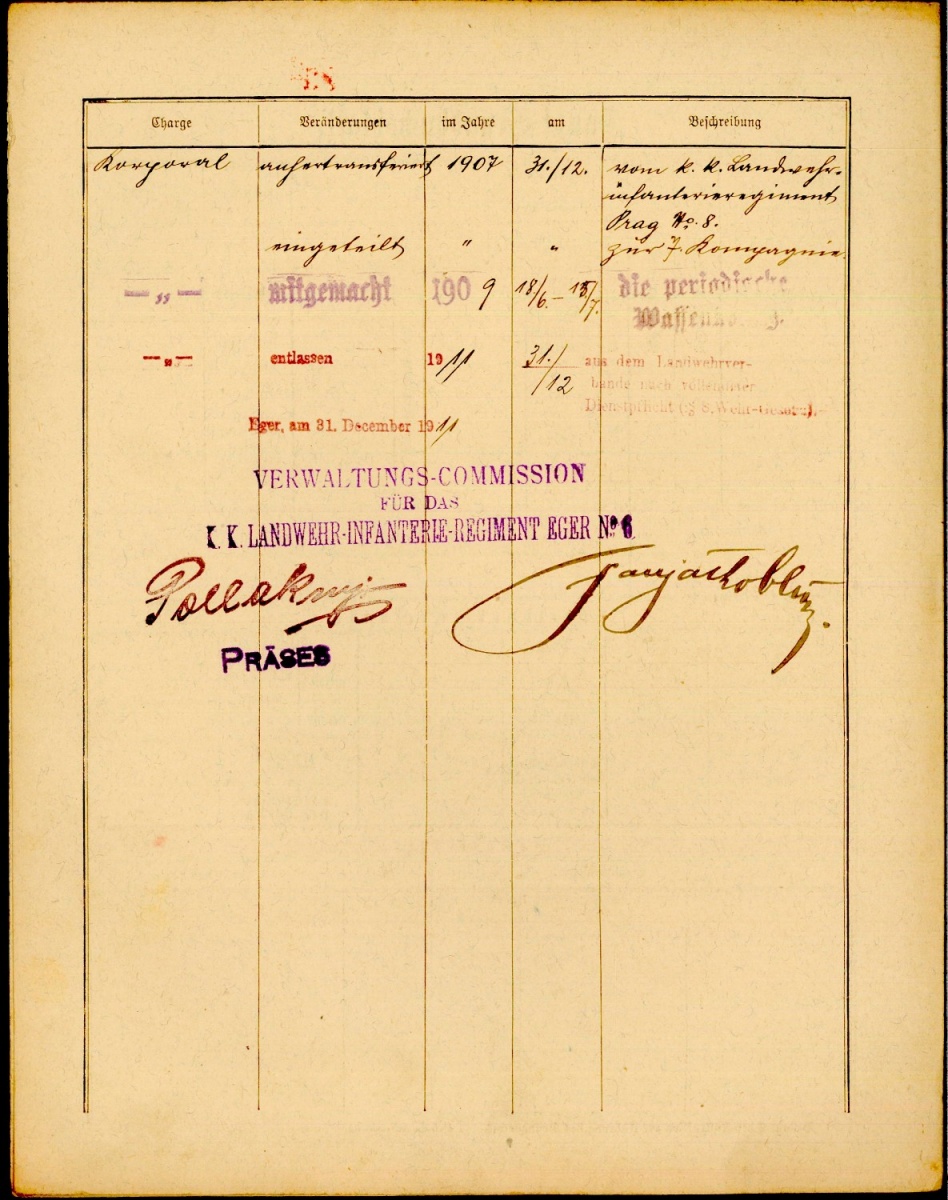 Charge Veränderungen im Jahre am Beschreibung
Korporal anhertransferiert 1907 31./12. vom k. k. Landwehr-
infanterieregiment
Prag No. 8.
eingeteilt " " zur 7. Kompagnie.
— " — mitgemacht 1909 18/6. – 15/7. die periodische
— " — entlassen 1911 31./12 aus dem Landwehrver-
bande nach vollendeter
Dienstpflicht (§ 8, Wehr-Gesetz).
Eger, am 31. December 1911
VERWALTUNGS-COMMISSION
FÜR DAS
K. K. LANDWEHR-INFANTERIE-REGIMENT EGER No 6
Pollak
PRÄSES